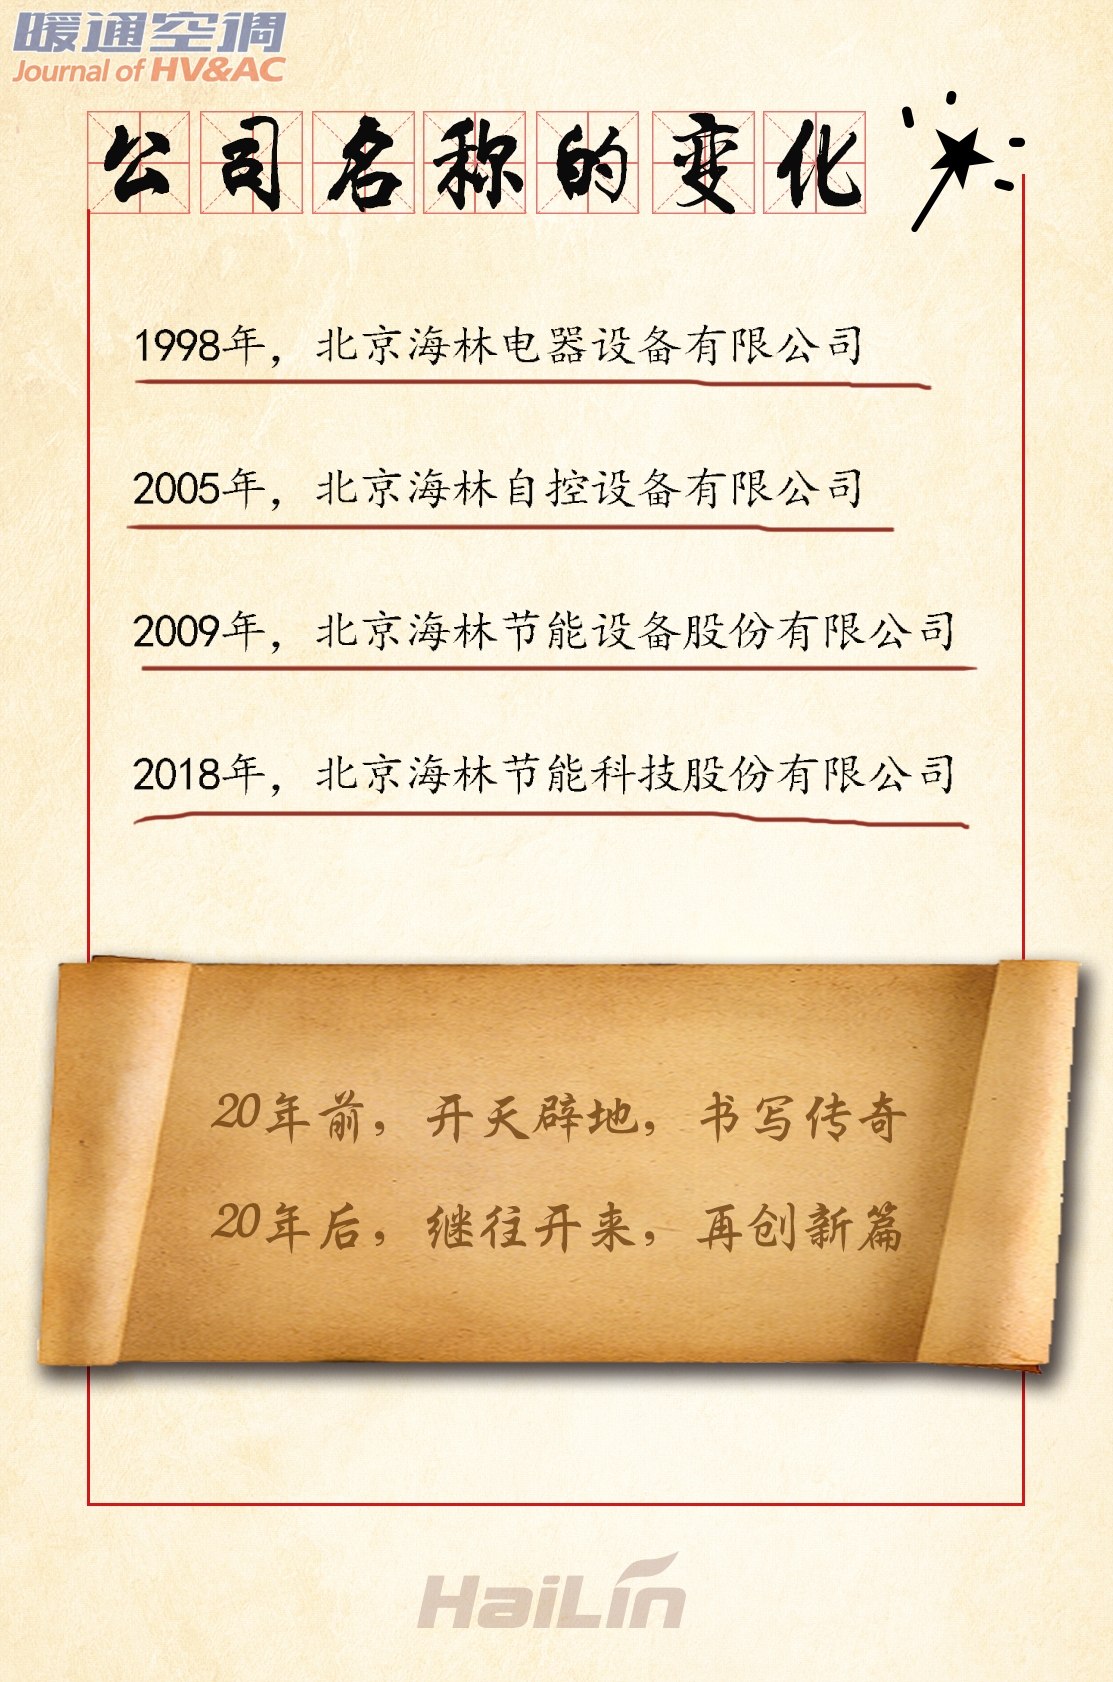 暖通空调
Journal of HV&AC
公司名称的变化
1998年，北京海林电器设备有限公司
2005年，北京海林自控设备有限公司
2009年，北京海林节能设备股份有限公司
2018年，北京海林节能科技股份有限公司
20年前，开天辟地，书写传奇
20年后，继往开来，再创新篇
HaiLin